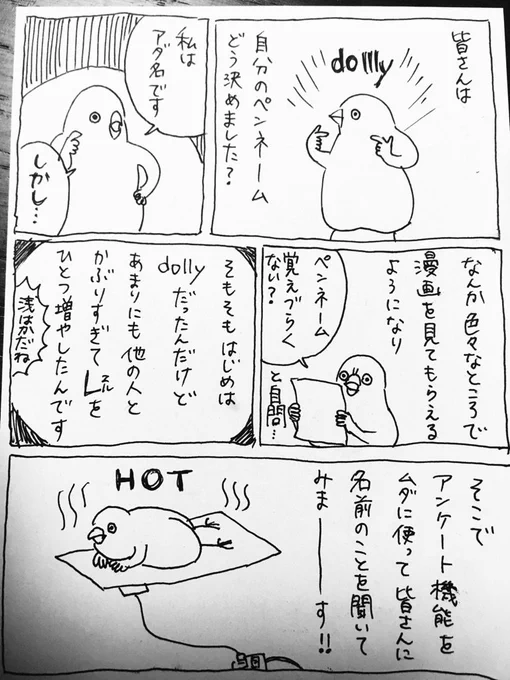 皆さんは
dollly
自分のペンネーム
どう決めました？
私は
アダ名です
しかし…
なんか色々なところで
漫画を見てもらえる
ようになり
ペンネーム
覚えづらく
ない？
と自問…
そもそもはじめは
dollyだったんだけど
あまりにも他の人と
かぶりすぎてLを
エル
ひとつ増やしたんです
浅はかだね
そこで
アンケート機能を
ムダに使って皆さんに
名前のことを聞いて
みまーーーす!!
HOT